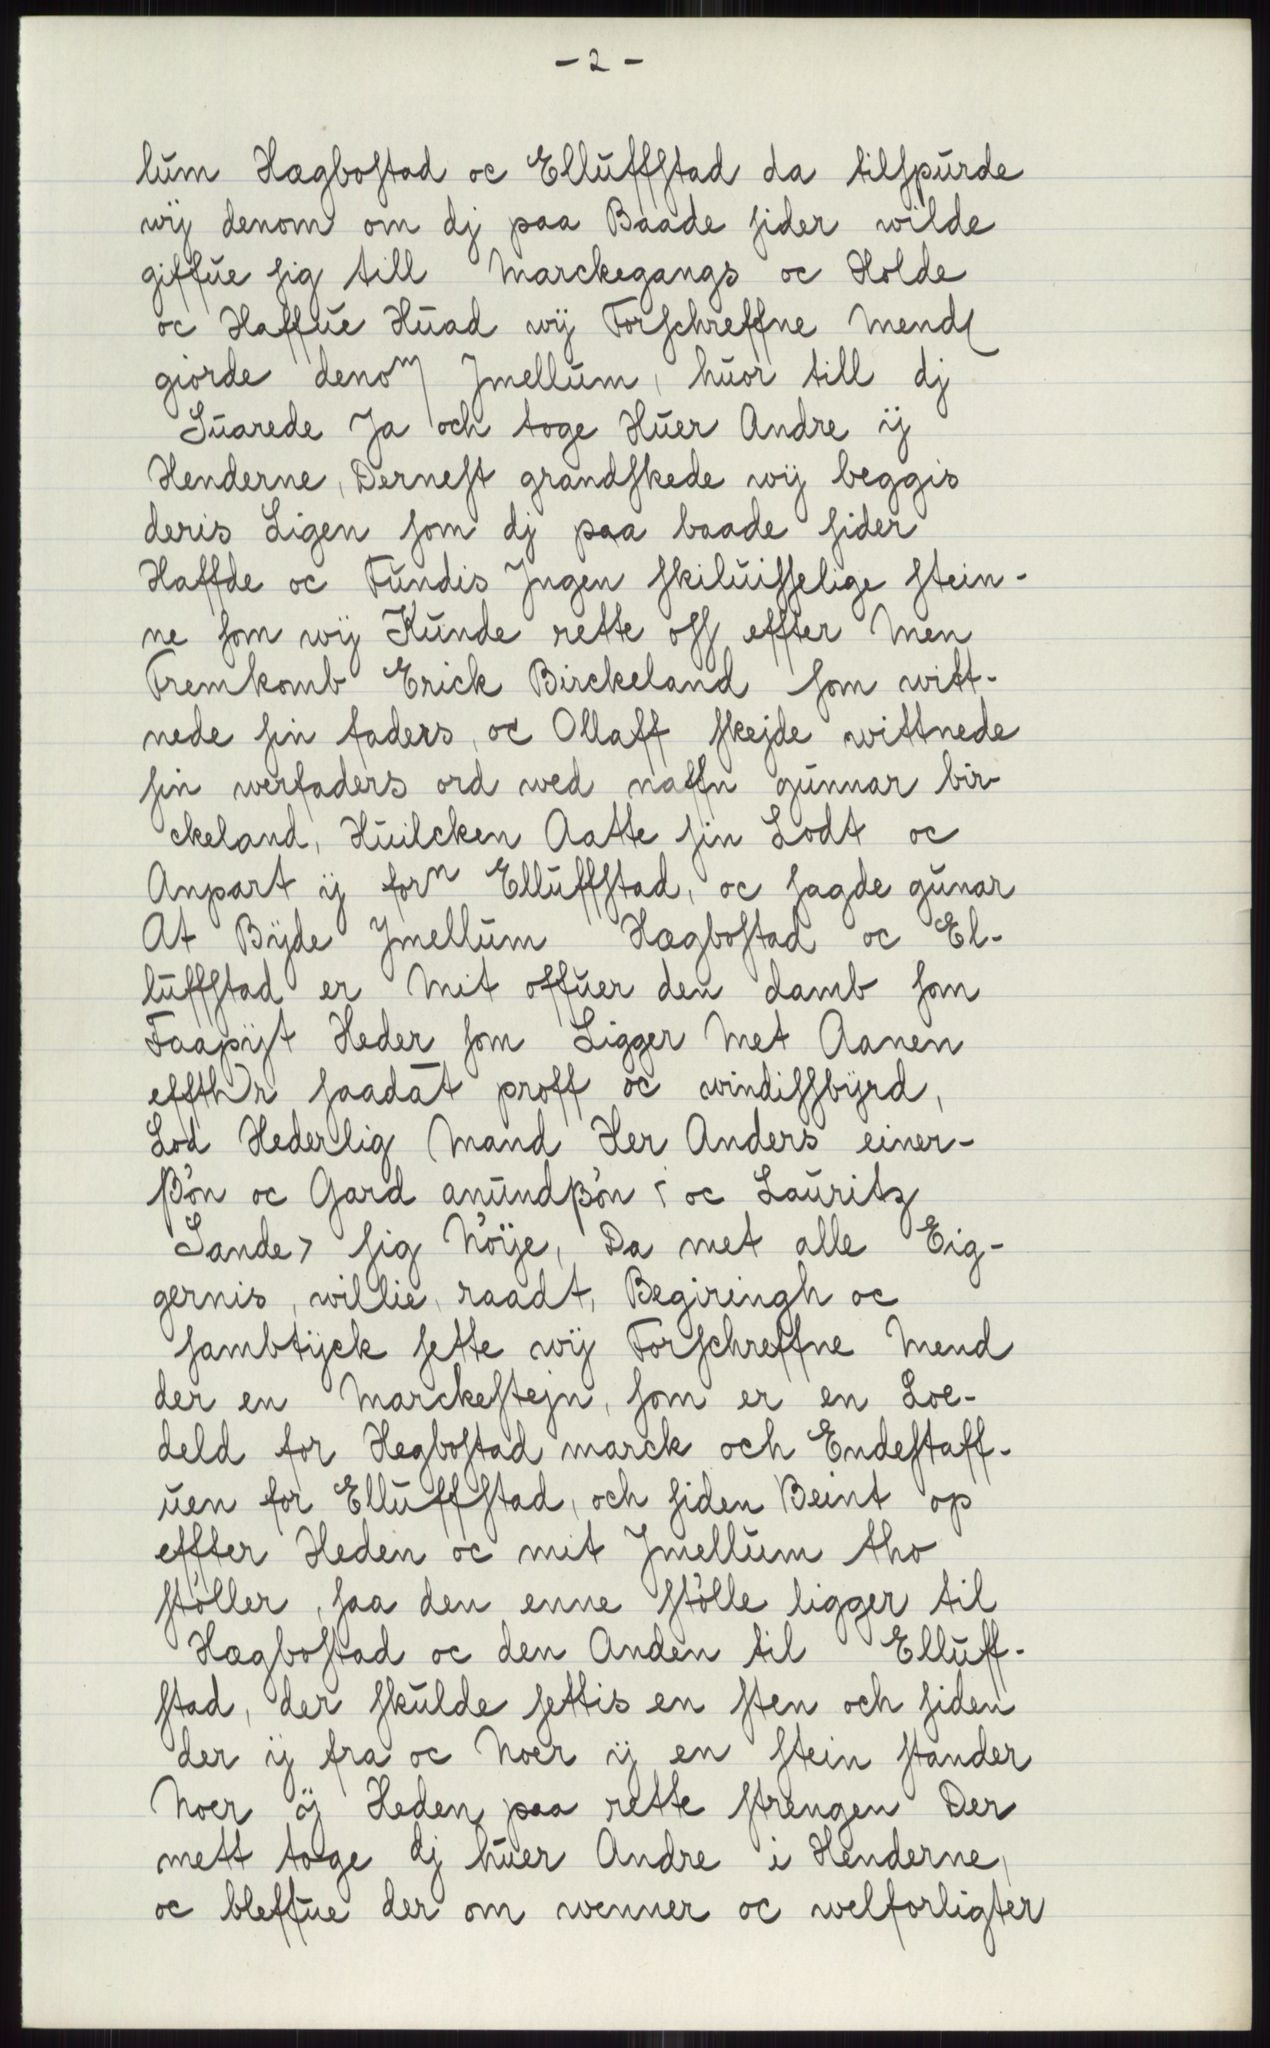 - 2 -
lum Hægbostad oc Elluffstad da tilspurde
wij denom om dj paa Baade sider wilde
giffue sig till Marckegangs oc Holde
oc Haffue Huad wij Forschreffne Mend
giorde denom Jmellum, huor till dj
Suarede Ja och toge Huer Andre ij
Henderne, Dernest grandskede wij beggis
deris Ligen som dj paa baade sider
Haffde oc Fundis Jngen skiluisselige stein-
ne som wij Kunde rette oss effter Men
Fremkomb Erick Birckeland som witt-
nede sin faders, oc Ollaff skejde wittnede
sin werfaders ord wed naffn gunnar bir-
ckeland, Huilcken Aatte sin Lodt oc
Anpart ij forn Elluffstad, oc sagde gunar
At Býde Jmellum Hægbostad oc El-
luffstad er Mit offuer den damb som
Faapijt Heder som Ligger Met Aanen
effthr saadāt proff oc windissbýrd,
Lod Hederlig Mand Her Anders einer-
sßøn oc Gard anundßøn ; oc Lauritz
Sande, sig Nøije, Da met alle Eig-
gernis, willie, raadt, Begiringh oc
sambtijck sette wij Forschreffne Mend
der en Marckestejn, som er en Loe-
deld for Hegbostad marck och Endestaff-
uen for Elluffstad, och siden Beint op
effter Heden oc mit Jmellum tho
støller, saa den enne stølle ligger til
Hægbostad oc den Anden til Elluff-
stad, der skulde settis en sten och siden
der ij fra oc Noer ij en stein stander
Noer ij Heden paa rette strengen Der
mett toge dj huer Andre i Henderne,
oc bleffue der om wenner oc welforligter